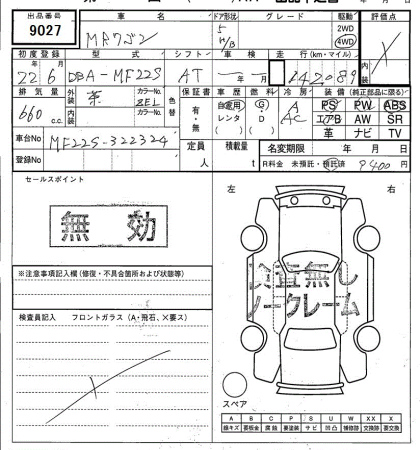 出品番号 車名 ドア形状 グレード 駆動 評価点
9027 MRワゴン 5 H/B 2WD 4WD
内装
初度登録 型式 シフト 車検 走行(km・マイル)
22年 6月 DBA-MF22S AT 年 月 142089
排気量 外装 茶 カラーNo. ZEL 色替 保証書 車歴 燃料 冷房 装備(純正部品に限る)
660 c.c. 内装 カラーNo. 有・無 自家用 レンタ ( ) G・D ( ) A AC PS PW ABS
エアB AW SR
革 ナビ TV
車台No MF22S-322324 定員 人 積載量 t 名変期限 年 月 日
登録No R料金 未預託・預託済 9400円
セールスポイント
無効
左 右
検査無し
ノークレーム
※注意事項記入欄(修復・不具合箇所および状態等)
検査員記入 フロントガラス(A・飛石、×要ス)
スペア
A B C P S U W XX X
線キズ 要板金 腐蝕 要塗装 サビ 凹凸 補修跡 交換跡 要交換